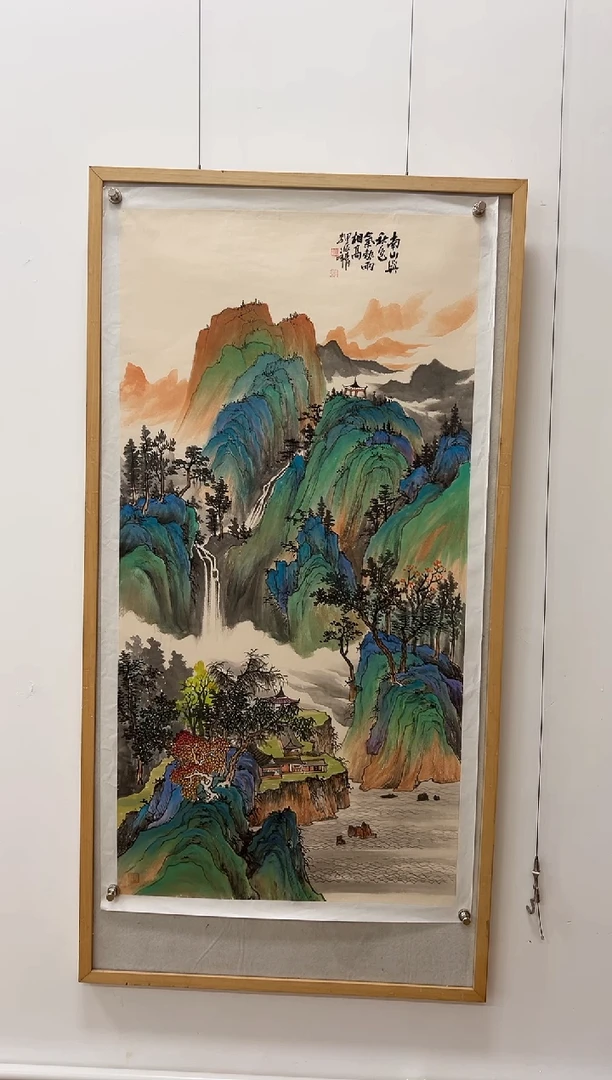 南山與
秋色
氣勢兩
相高